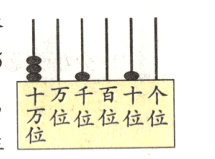 十万位 万位 千位 百位 十位 个位